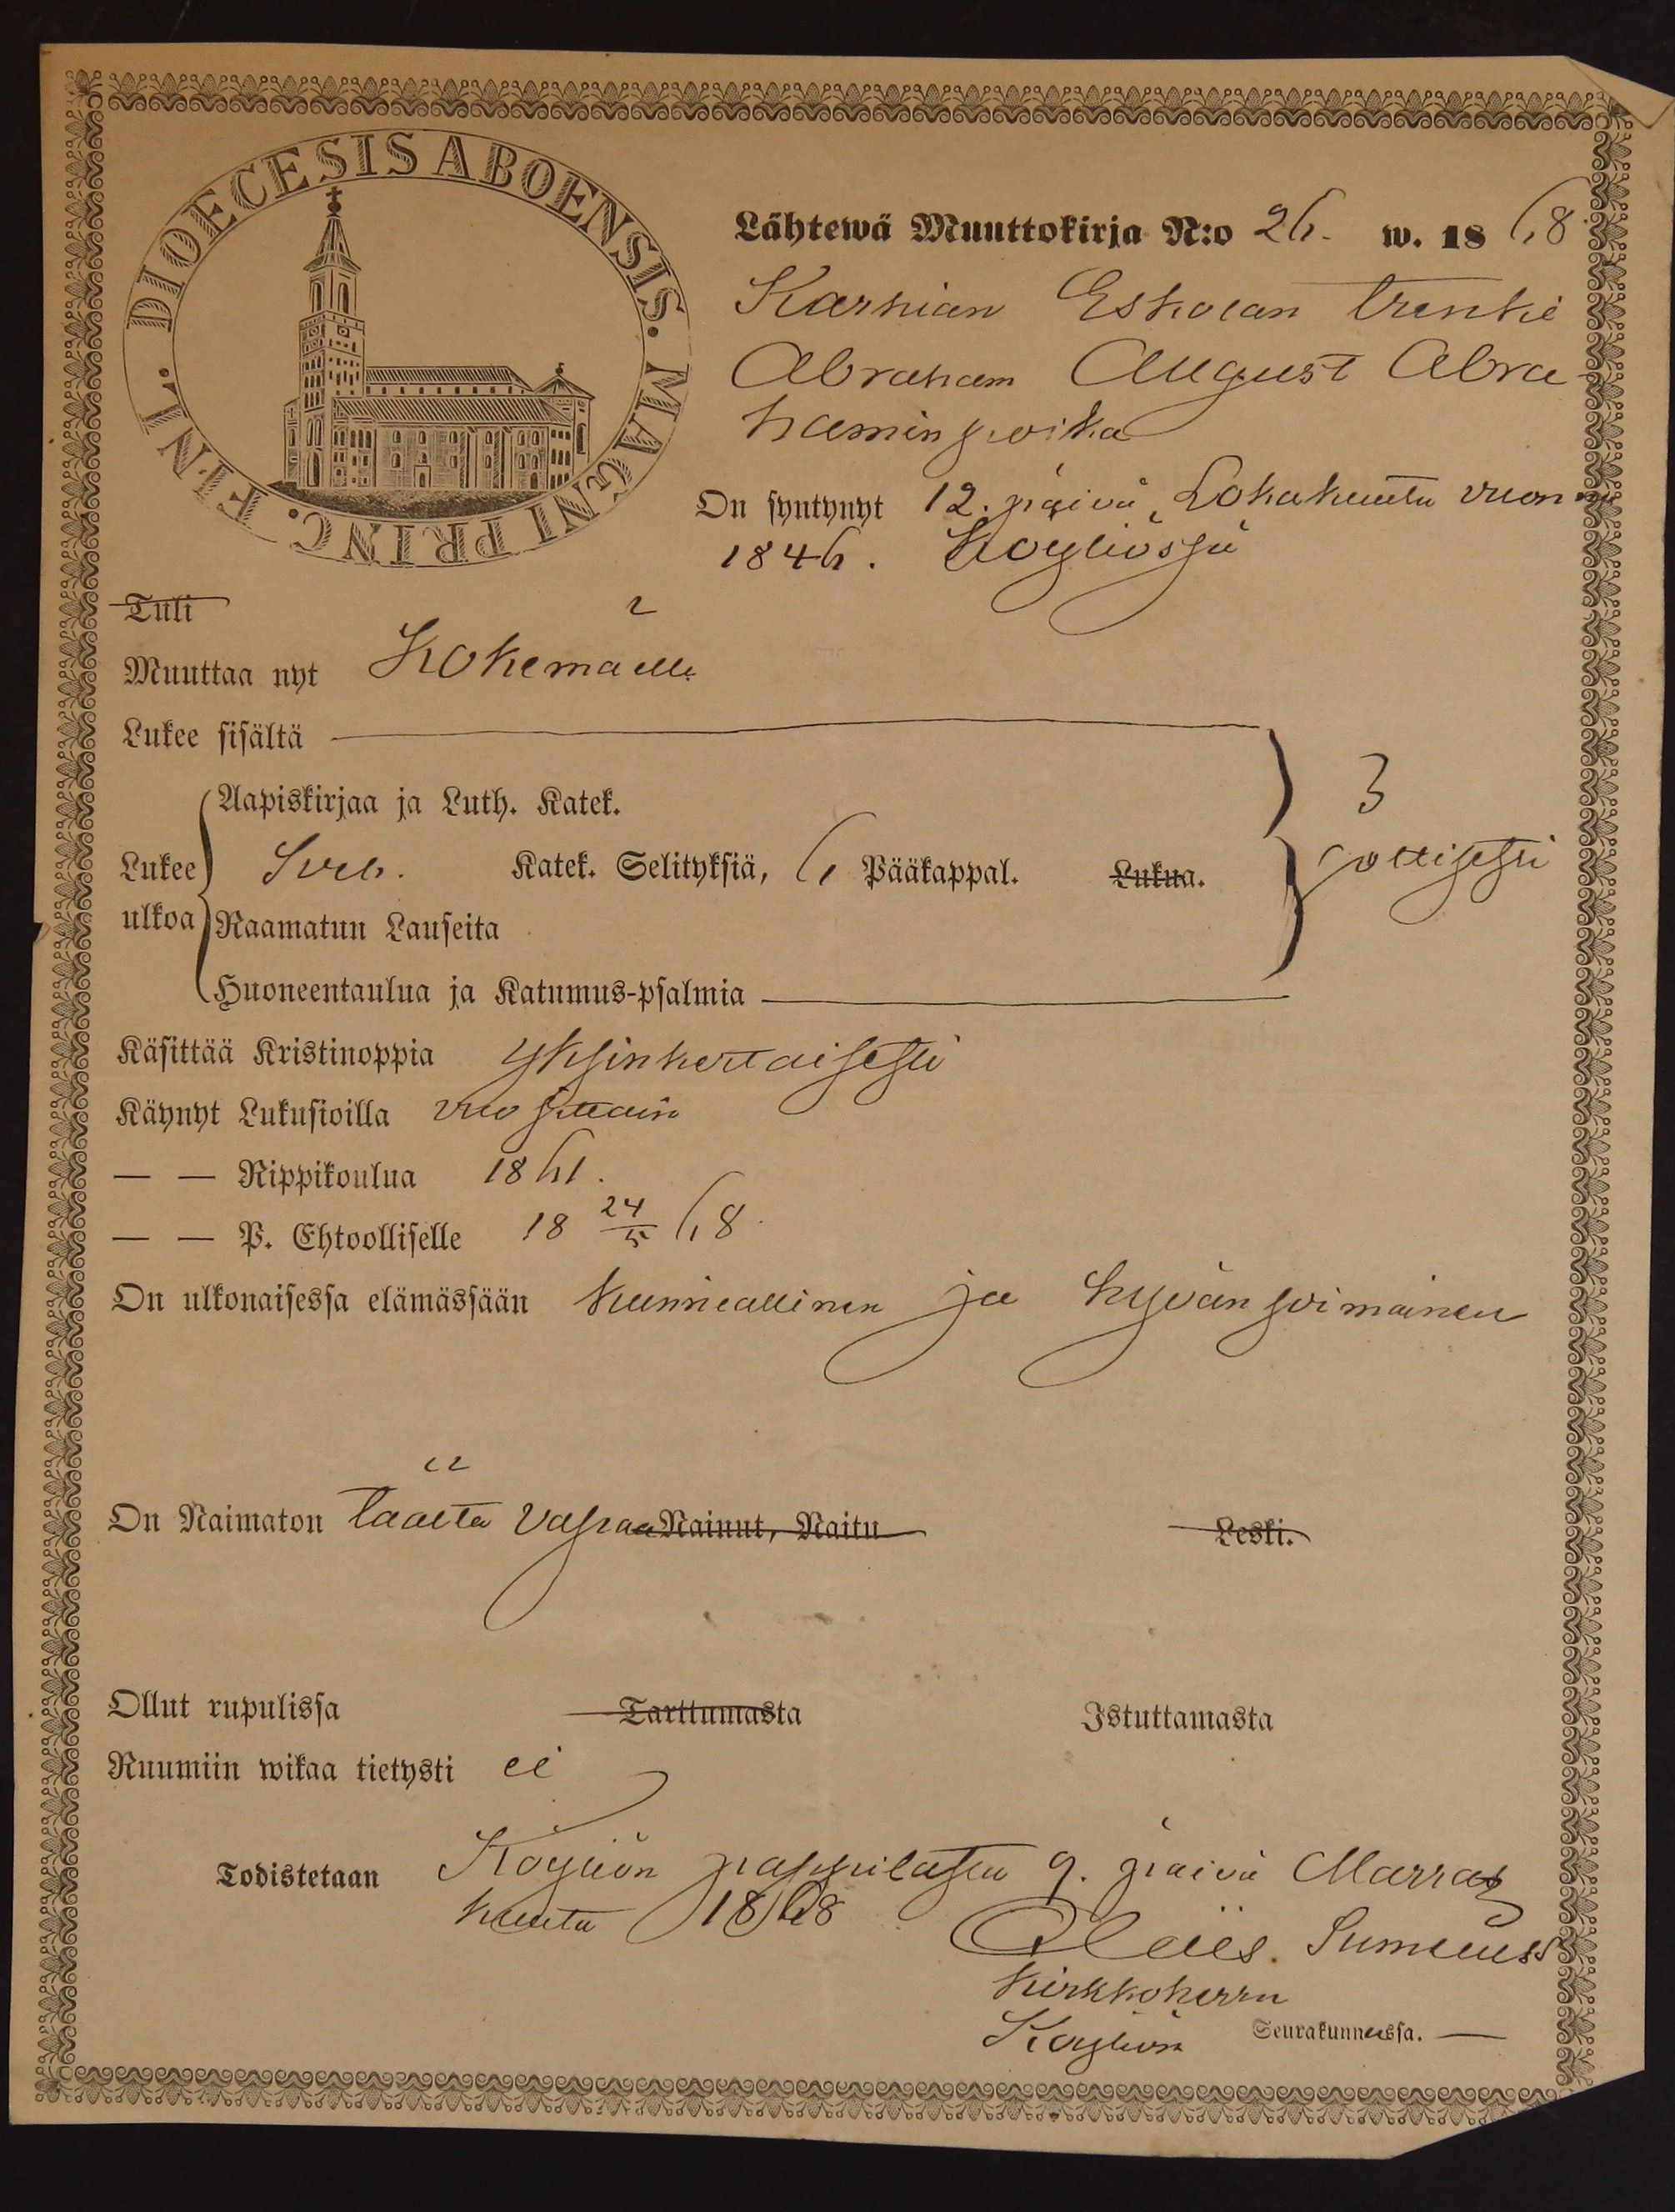 DIOECESIS ABOENSIS. MAGNI PRINC. FINL.
Lähtewä Muuttokirja N:o 26. w. 1868.
Karhian Eskolan trenki
Abraham August Abra-
hamin poika
On syntynyt 12. päivä Lokakuuta vuonna
1846. Köyliössä
Tuli
Muuttaa nyt Kokemäelle
Lukee sisältä
Aapiskirjaa ja Luth. Katek. 3
Lukee Sveb. Katek. Selityksiä, 6 Pääkappal. Lukua.
ulkoa Raamatun Lauseita
Huoneentaulua ja Katumus-psalmia
Käsittää Kristinoppia yksinkertaisesti
Käynyt Lukusioilla vuosittain
— — Rippikoulua 1861.
— — P. Ehtoolliselle 18 24/5 68.
On ulkonaisessa elämässään kunniallinen ja hyvänsoimainen
On Naimaton täältä vapaa Nainut, Naitu Leski.
Ollut rupulissa Tarttumasta Istuttamasta
Ruumiin wikaa tietysti ei
Todistetaan Köyliön pappilassa 9. päivä Marras
kuuta 1868
Kirkkoherra
Köyliön Seurakunnassa.